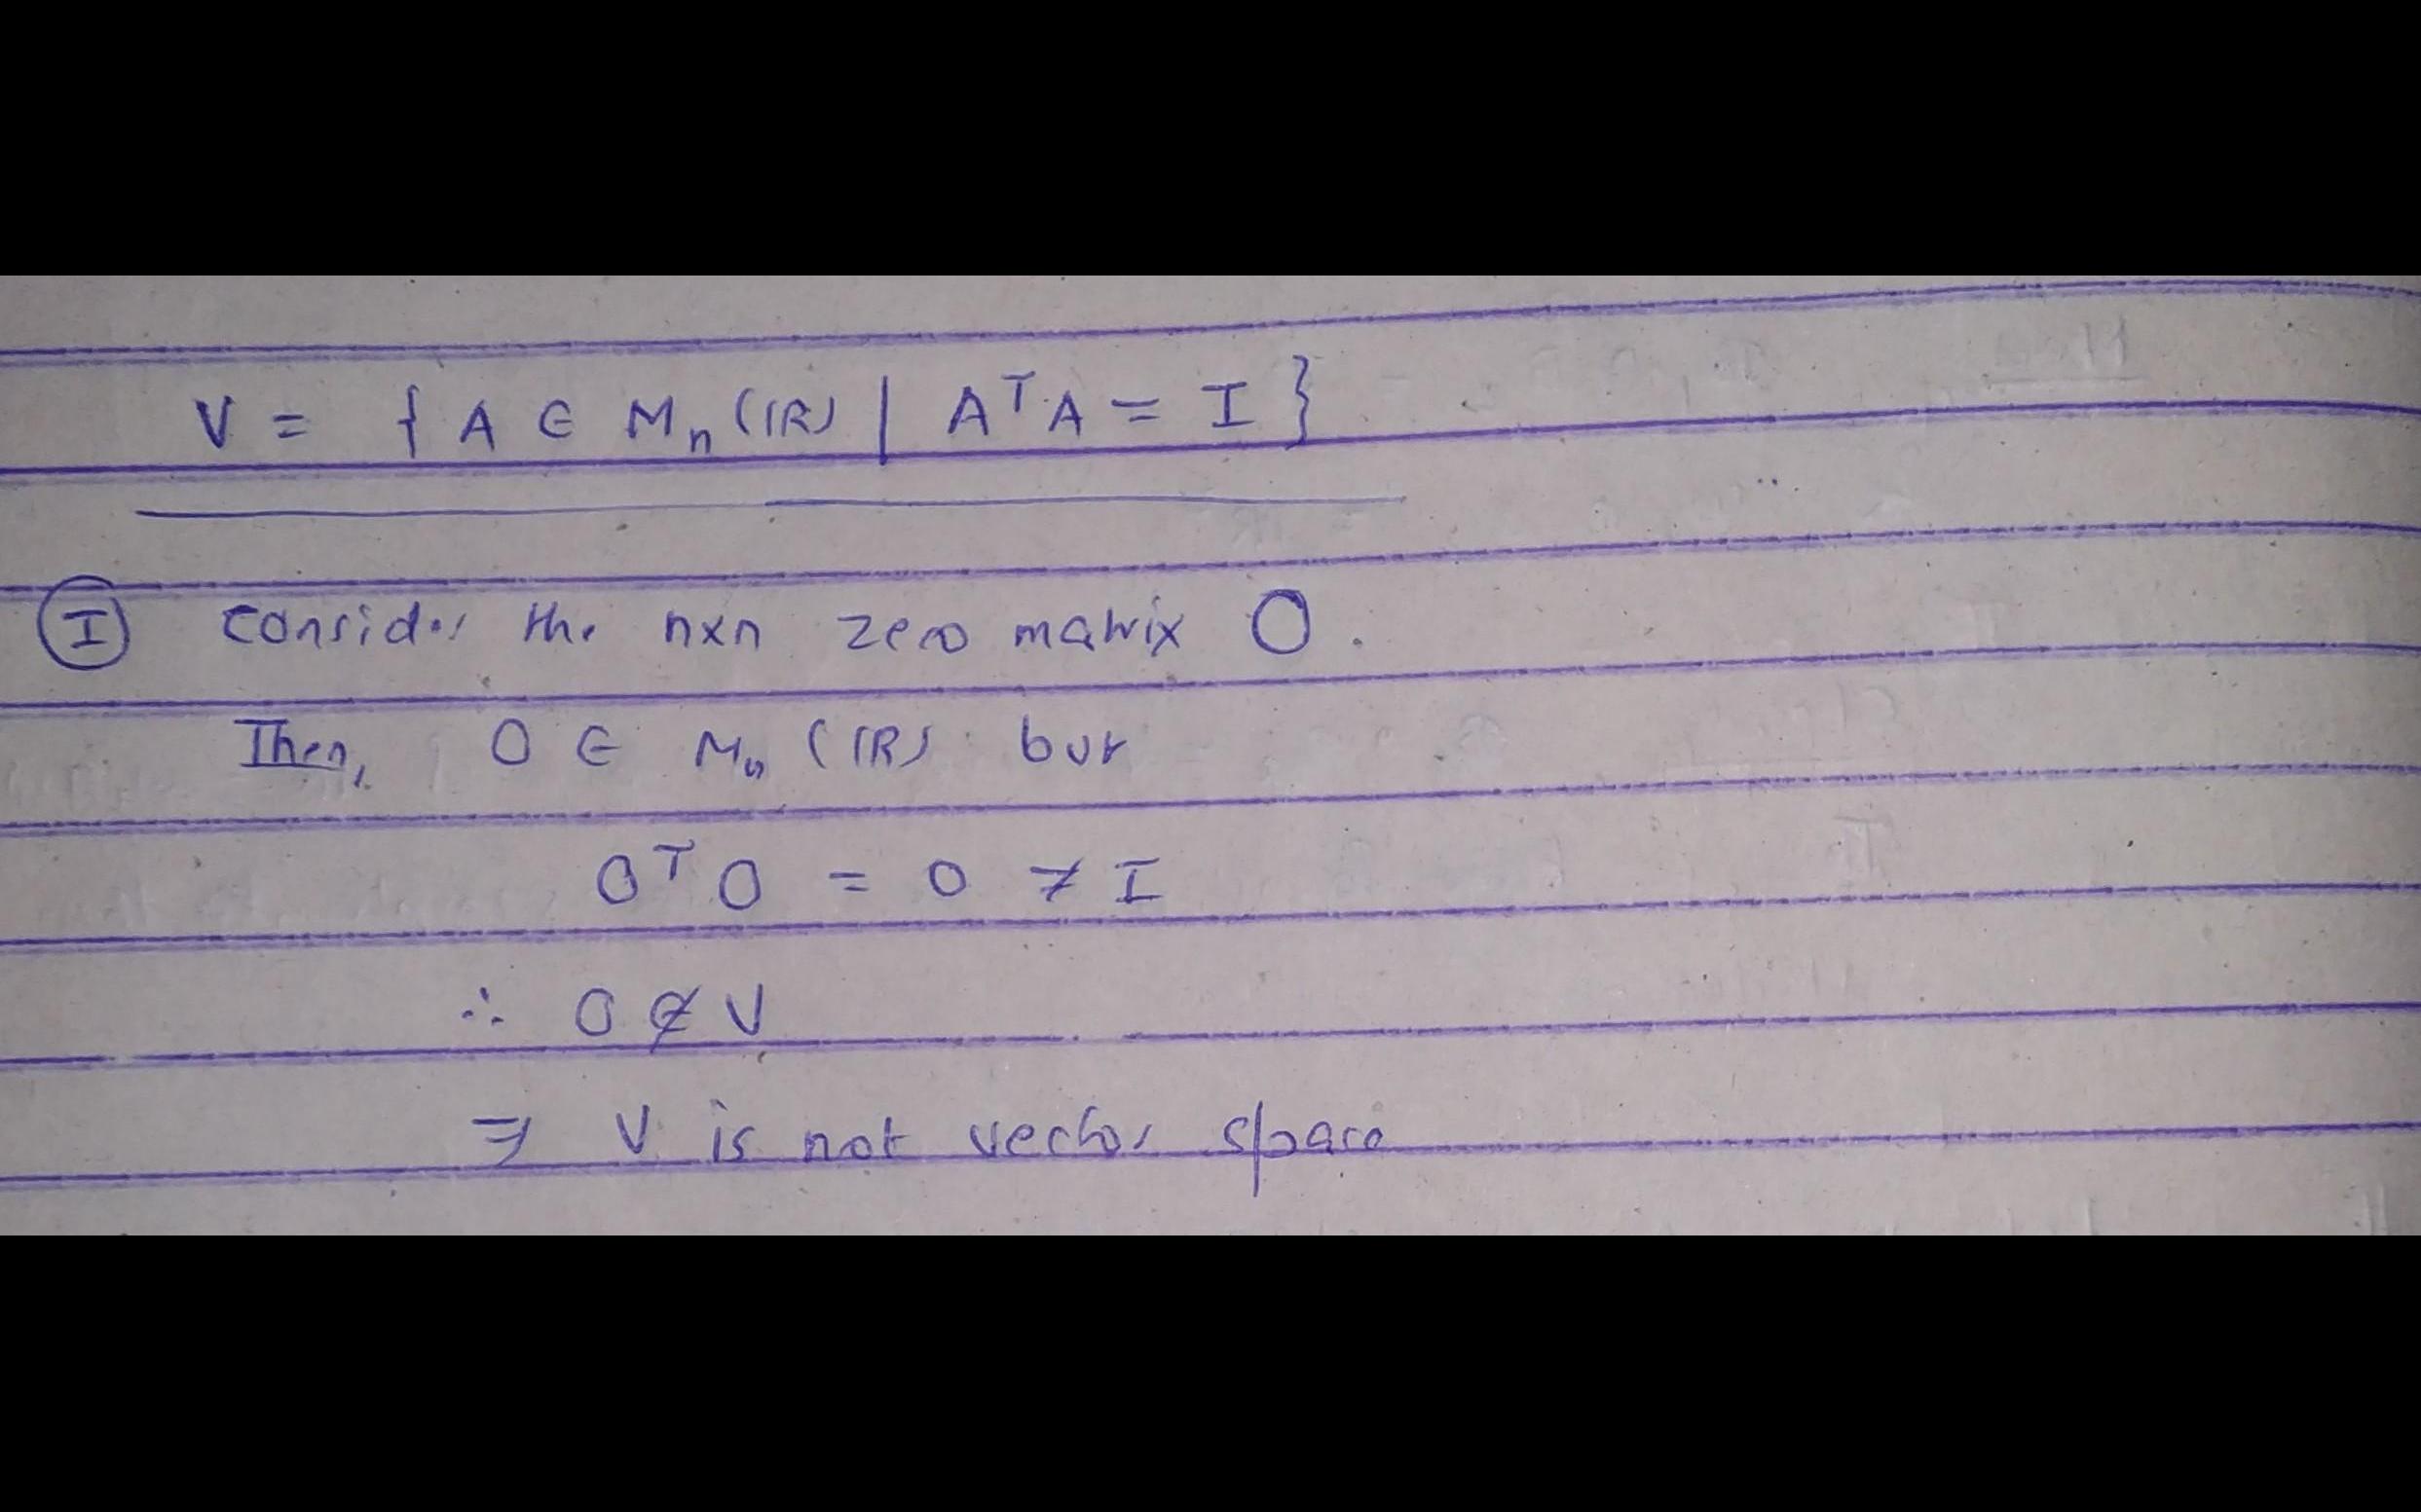 V = { A ∈ Mₙ(IR) | AᵀA = I }
Ⓘ Consider the n×n zero matrix O.
Then, O ∈ Mₙ(IR) but
OᵀO = O ≠ I
∴ O ∉ V
⇒ V is not vector space